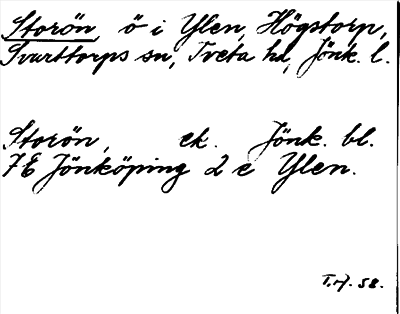 Storön, ö i Ylen, Högstorp,
Svarttorps sn, Tveta hd, Jönk. l.
Storön, ek. Jönk. bl.
7E Jönköping 2 e Ylen.
T.H. 58.